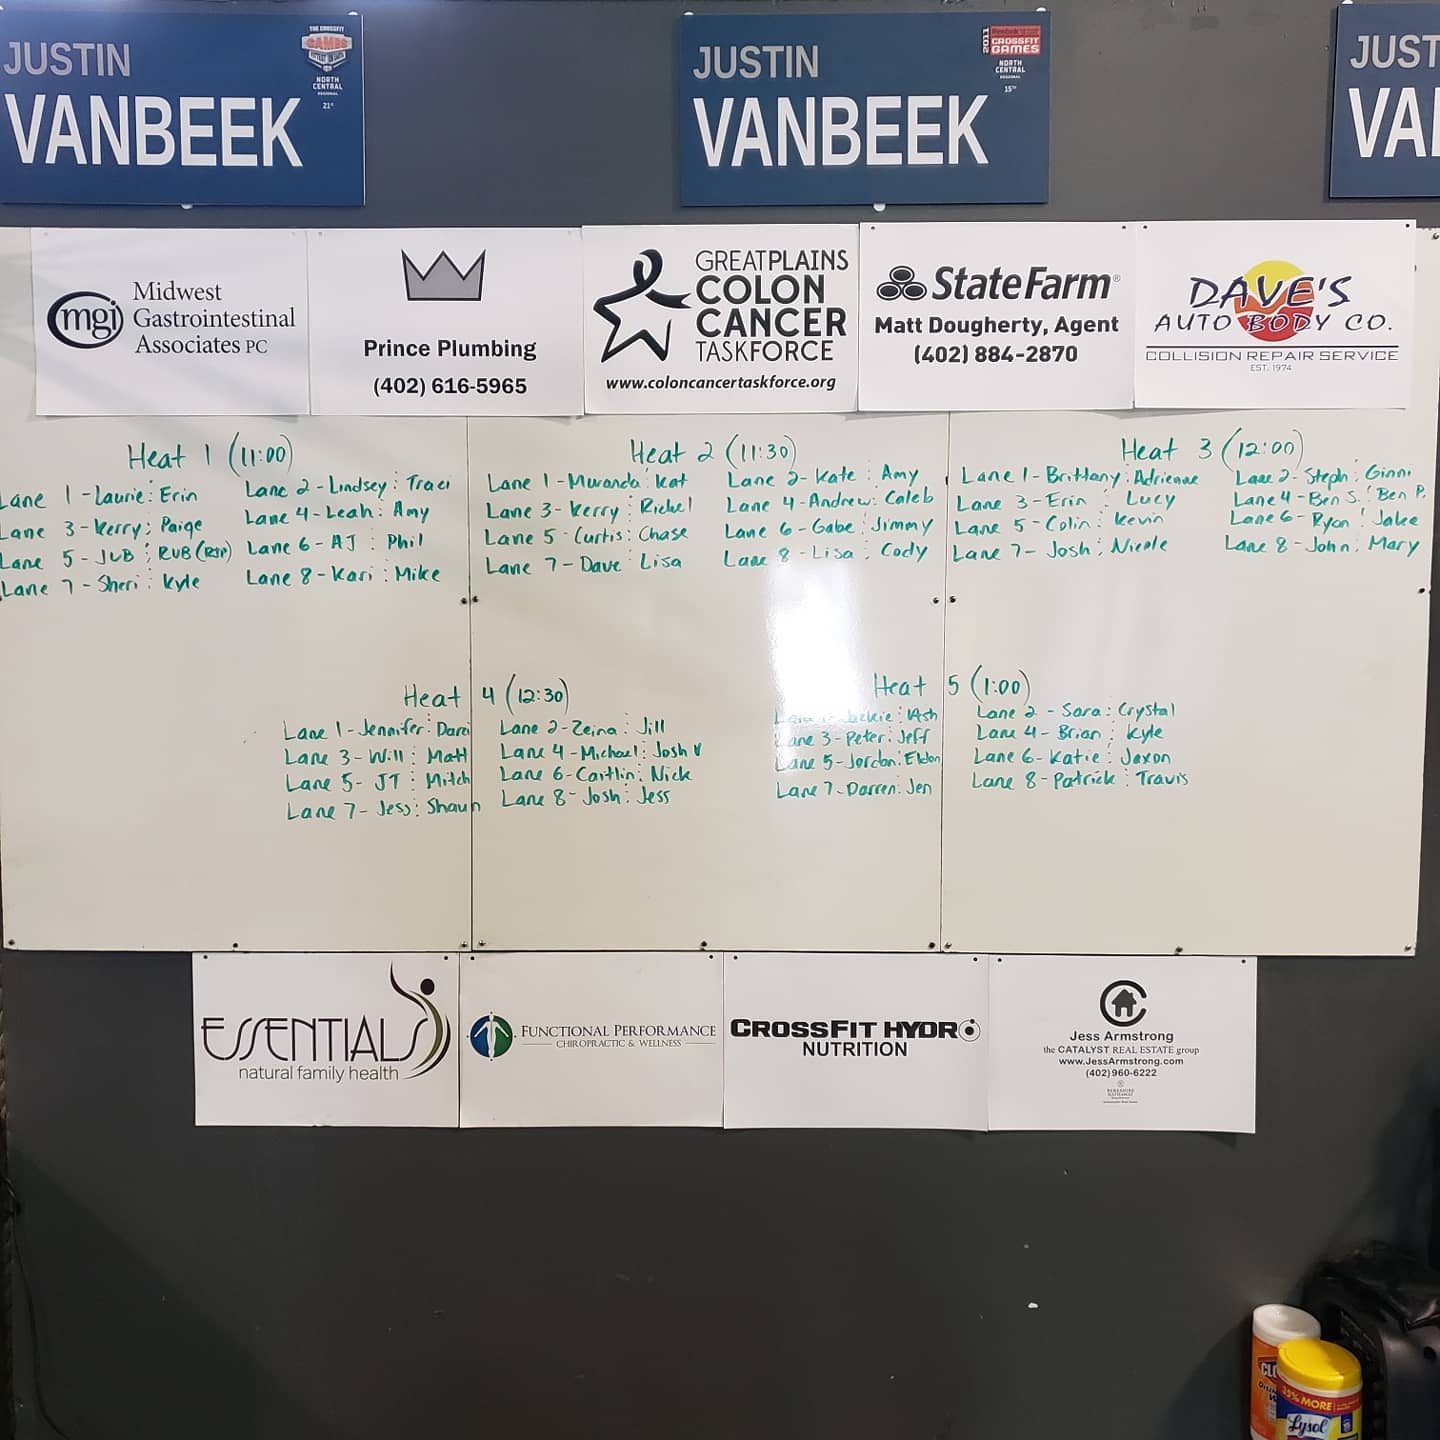 JUSTIN
VANBEEK
THE CROSSFIT
GAMES
NORTH
CENTRAL
REGIONAL
21st
JUSTIN
VANBEEK
2011
CROSSFIT
GAMES
NORTH
CENTRAL
REGIONAL
15TH
JUST
VA
mgi
Midwest
Gastrointestinal
Associates PC
Prince Plumbing
(402) 616-5965
GREATPLAINS
COLON
CANCER
TASKFORCE
www.coloncancertaskforce.org
StateFarm®
Matt Dougherty, Agent
(402) 884-2870
DAVE'S
AUTO BODY CO.
COLLISION REPAIR SERVICE
EST. 1974
Heat 1 (11:00)
Lane 1 - Laurie : Erin
Lane 2 - Lindsey : Traci
Lane 3 - Kerry : Paige
Lane 4 - Leah : Amy
Lane 5 - JVB : RVB (RIP)
Lane 6 - AJ : Phil
Lane 7 - Sheri : Kyle
Lane 8 - Kari : Mike
Heat 2 (11:30)
Lane 1 - Muranda : Kat
Lane 2 - Kate : Amy
Lane 3 - Kerry : Richel
Lane 4 - Andrew : Caleb
Lane 5 - Curtis : Chase
Lane 6 - Gabe : Jimmy
Lane 7 - Dave : Lisa
Lane 8 - Lisa : Cody
Heat 3 (12:00)
Lane 1 - Brittany : Adrienne
Lane 2 - Steph : Ginni
Lane 3 - Erin : Lucy
Lane 4 - Ben S. : Ben P.
Lane 5 - Colin : Kevin
Lane 6 - Ryan : Jake
Lane 7 - Josh : Nicole
Lane 8 - John : Mary
Heat 4 (12:30)
Lane 1 - Jennifer : Darci
Lane 2 - Zeina : Jill
Lane 3 - Will : Matt
Lane 4 - Michael : Josh V
Lane 5 - JT : Mitch
Lane 6 - Caitlin : Nick
Lane 7 - Jess : Shaun
Lane 8 - Josh : Jess
Heat 5 (1:00)
Jackie : Ash
Lane 2 - Sara : Crystal
Lane 3 - Peter : Jeff
Lane 4 - Brian : Kyle
Lane 5 - Jordan : Eldon
Lane 6 - Katie : Jaxon
Lane 7 - Darren : Jen
Lane 8 - Patrick : Travis
ESSENTIALS
natural family health
FUNCTIONAL PERFORMANCE
CHIROPRACTIC & WELLNESS
CROSSFIT HYDRO
NUTRITION
Jess Armstrong
the CATALYST REAL ESTATE group
www.JessArmstrong.com
(402) 960-6222
BERKSHIRE
HATHAWAY
CLO
35% MORE
Lysol